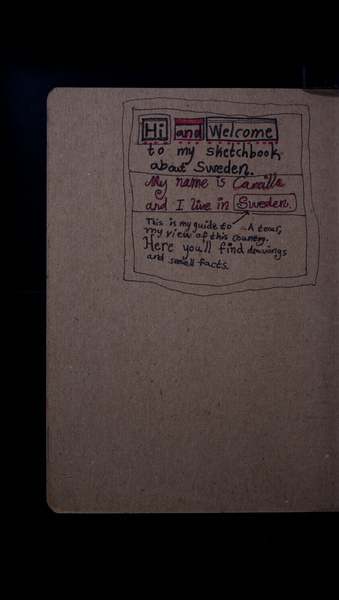 Hi and Welcome
to my sketchbook
about Sweden.
My name is Camilla
and I live in Sweden.
This is my guide to A tear,
my view of this country.
Here you'll find drawings
and small facts.